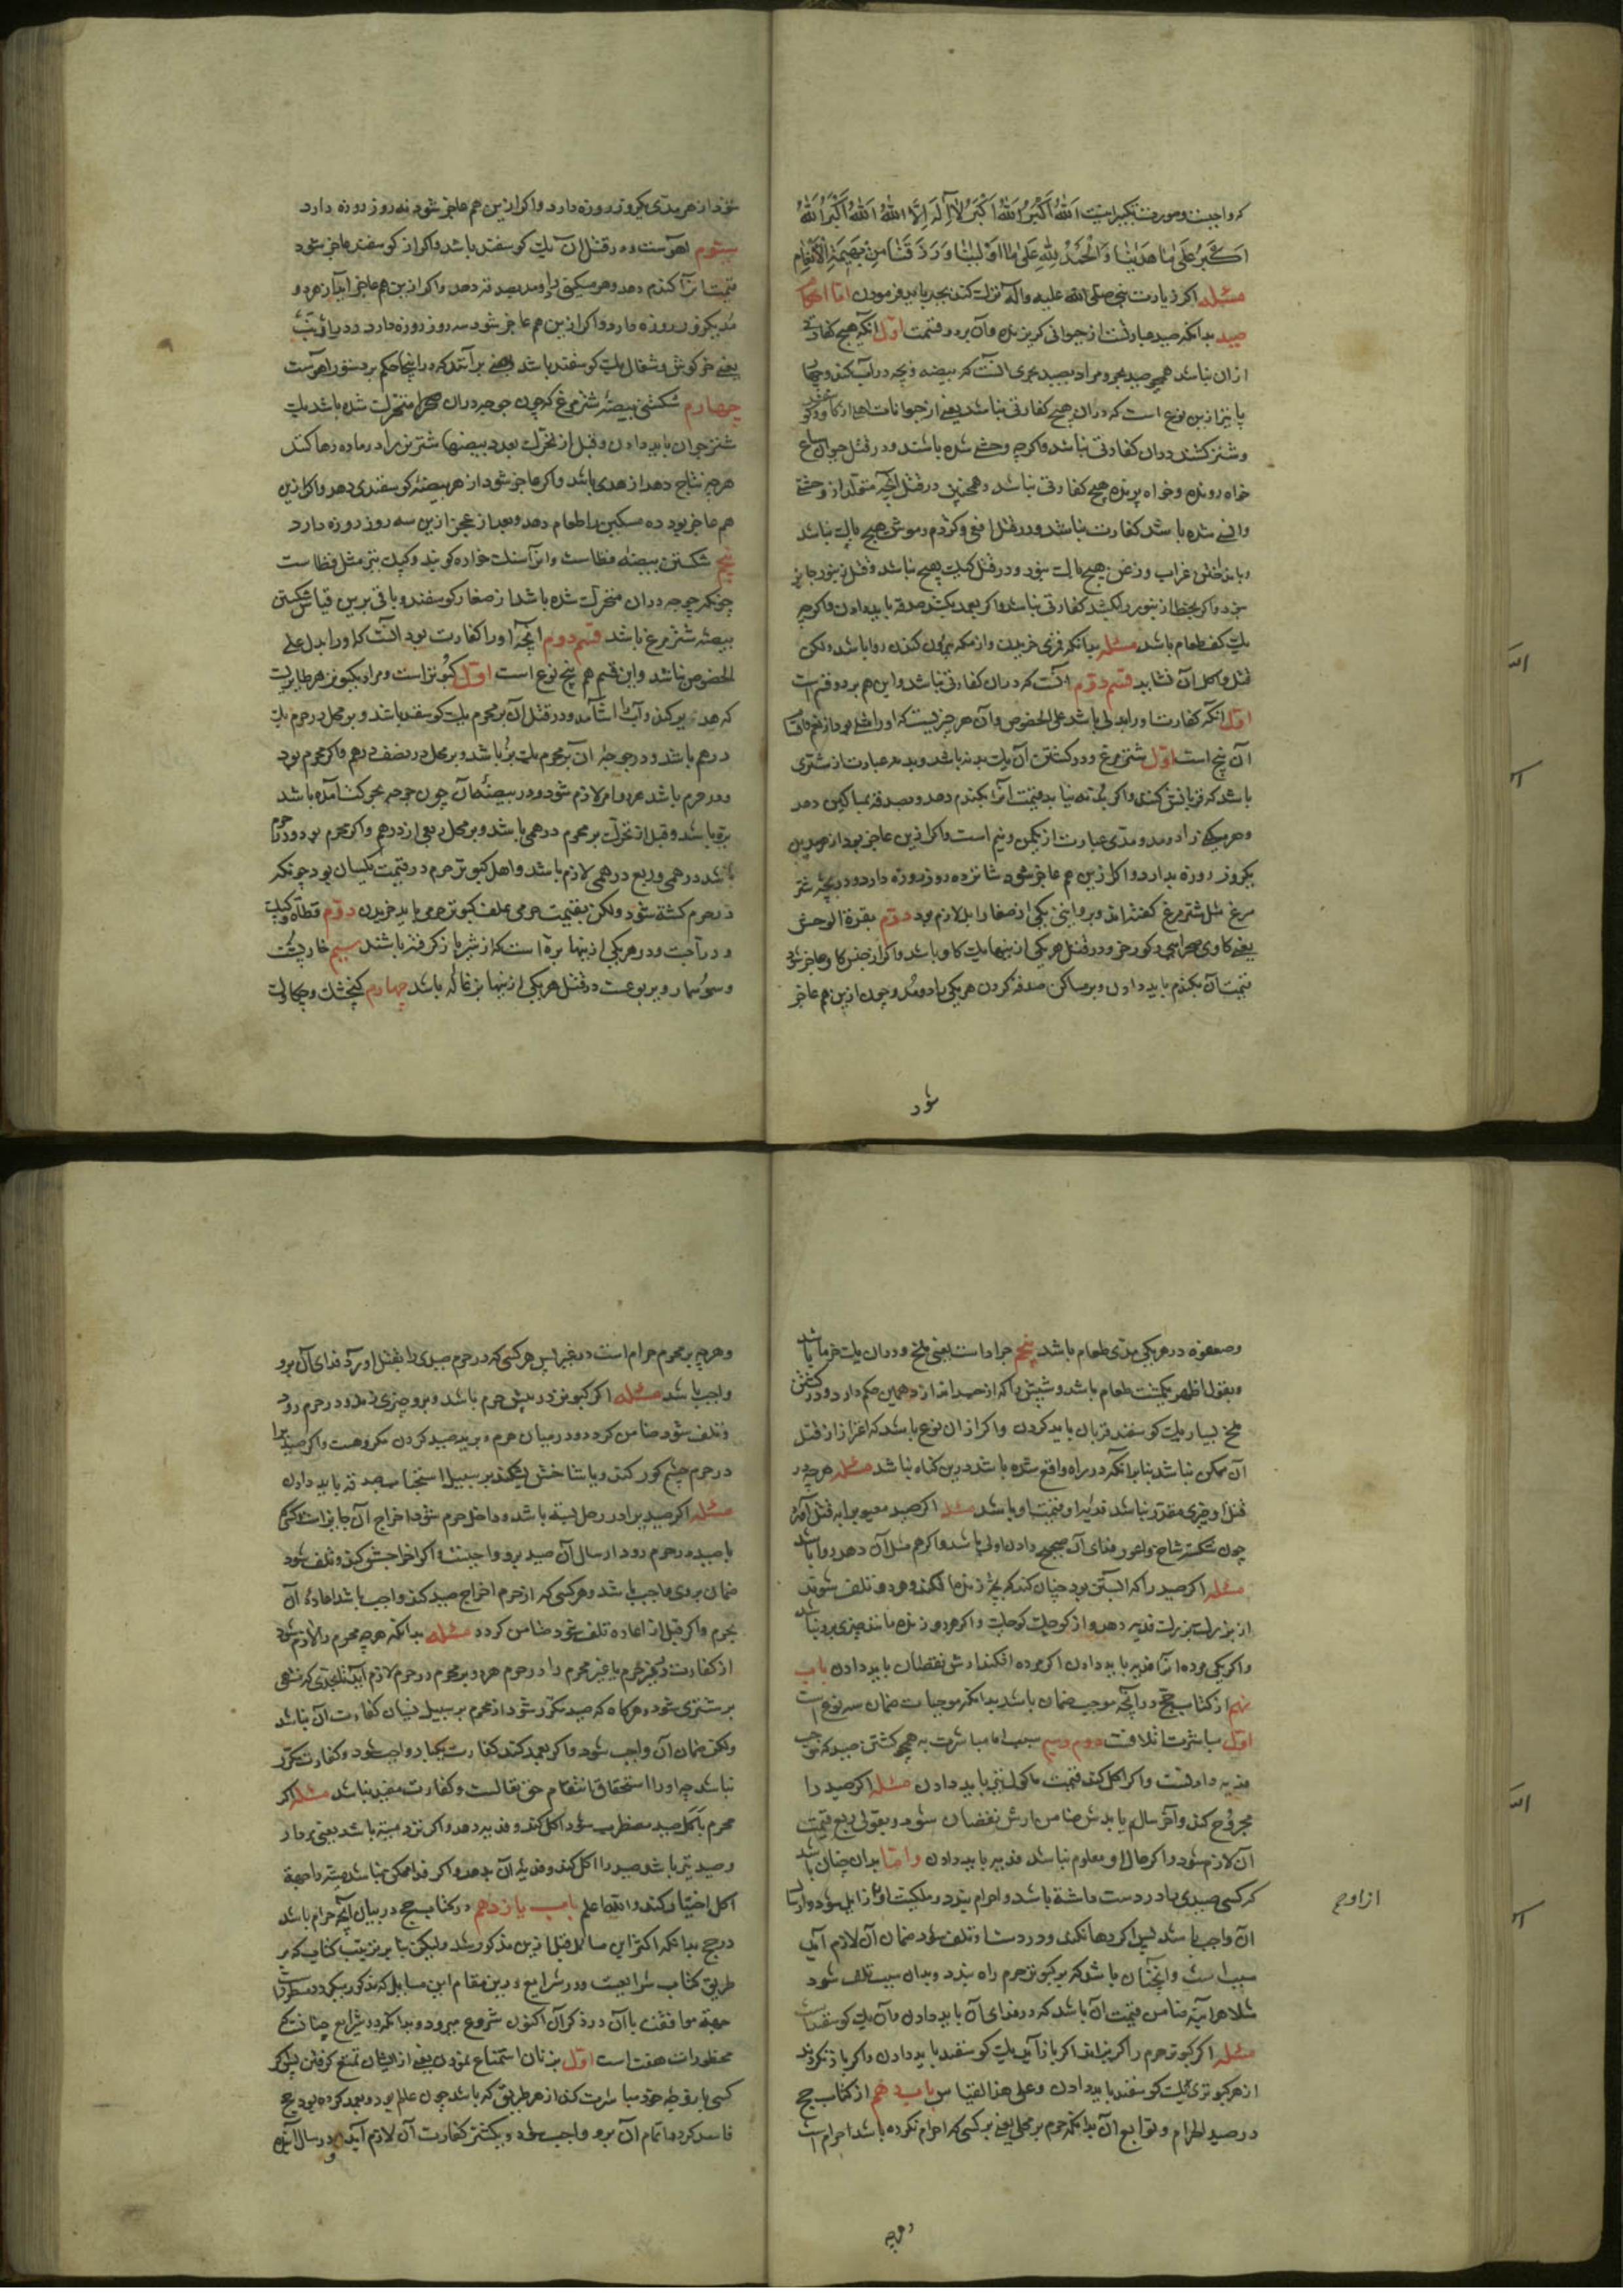 که واجبست و صورت تکبیر اینست اَللهُ اَکْبَرُ اَللهُ اَکْبَرُ لا اِلهَ اِلَّا اللهُ اَللهُ اَکْبَرُ اَللهُ
اَکْبَرُ عَلی ما هَدَینا وَ اَلْحَمْدُ لِلّهِ عَلی ما اَوْلَینا وَ رَزَقَنا مِنْ بَهیمَةِ الْاَنْعامِ
مسئله اکر زیارت نبی صلی الله علیه واله ترک کنند بجبر باید فرمودن اما احکام
صید بدانکه صید عبارتست از حیوانی کریزنده وآن بر دو قسمت اول آنکه هیچ کفارتی
ازان نباشد همچو صید بحر و مراد بصید بحری آنست که بیضه و بچه در آب کند و چهار
پا نیز ازین نوع است که دران هیچ کفارتی نباشد یعنی از حیوانات اهلی از کاو و کوسفند
و شتر کشند دران کفارتی نباشد واکرچه وحشی شده باشند و در قتل حیوان سباع
خواه رونده و خواه پرنده هیچ کفارتی نباشد و همچنین در قتل آنچه متولد از وحشی
وانسی شده باشد کفارت نباشد و در قتل افعی و کژدم و موش هیچ باک نباشد
و بانداختن غراب و زغن هیچ باک نبود و در قتل کیک هیچ نباشد و قتل زنبور جایز
نبود واکر بخطا زنبور را کشد کفارتی نباشد واکر بعمد بکشد صدقه باید دادن واکرچه
یک کف طعام باشد مسئله بدانکه قمری خریدن و از مکه بیرون کردن روا باشد ولکن
قتل و اکل آن نشاید قسم دوم آنست که دران کفارتی باشد واین هم بر دو قسم است
اول آنکه کفارت او را بدلی باشد علی الخصوص وآن هر چیزیست که او را مثلی بود از نعم و اقسام
آن پنج است اول شتر مرغ و در کشتن آن یک بدنه باشد و بدنه عبارت از شتری
باشد که قربانی کنند واکر بدنه نیابد قیمت آنرا بکندم دهد و بصدقه بمساکین دهد
و هر یکی را دو مد و مدی عبارت از یکمن و نیم است واکر ازین عاجز بود از هر مدین
یکروز روزه بدارد و اکر ازین هم عاجز شود شانزده روز روزه دارد و در بچه شتر
مرغ مثل شتر مرغ کفته اند و بروایتی یکی از صغار ابل لازم بود دوم بقرة الوحش
یعنی کاوی صحرایی و کورخر و در قتل هر یکی از اینها یک کاو باشد واکر از جنس کاو عاجز شود
قیمت آن بکندم باید دادن و بر مساکین صدقه کردن هر یکی را دو مد و چون ازین هم عاجز
شود
شود از هر مدی یکروز روزه دارد واکر ازین هم عاجز شود نه روز روزه دارد
سیوم آهوست و در قتل آن یک کوسفند باشد واکر از کوسفند عاجز شود
قیمتش را کندم دهد و هر مسکین را دو مد بصدقه دهد واکر ازین هم عاجز آید از هر دو
مد یکروز روزه دارد واکر ازین هم عاجز شود سه روز روزه دارد و در ارنب
یعنی خرکوش و شغال یک کوسفند باشد وبعضی برآنند که در اینجا حکم بر دستور آهوست
چهارم شکستن بیضه شتر مرغ که چون جوجه دران متحرک شده باشد یک
شتر جوان باید دادن و قبل از تحرک بعدد بیضها شتر نر را در ماده رها کند
هرچه نتاج دهد از هدی باشد واکر عاجز شود از هر بیضه کوسفندی دهد واکر ازین
هم عاجز بود ده مسکین را طعام دهد وبعد از عجز ازین سه روز روزه دارد
پنجم شکستن بیضه قطاست و انرا سنک خواره کویند و کبک نیز مثل قطاست
چونکه جوجه دران متحرک شده باشد از صغار کوسفند و باقی برین قیاس شکستن
بیضه شتر مرغ باشد قسم دوم آنچه او را کفارت بود آنست که او را بدل علی
الخصوص نباشد واین قسم هم پنج نوع است اول کبوتر است و مراد بکبوتر هر طایریست
که هدیر کند و آب آشامد و در قتل آن بر محرم یک کوسفند باشد و بر محل در حرم یک
درهم باشد و در جوجه آن بر محرم یک بره باشد و بر محل در نصف درهم واکر محرم بود
و در حرم باشد هر دو امر لازم شود و در بیضه آن چون جوجه بحرکت آمده باشد
بره باشد و قبل از تحرک بر محرم درهمی باشد و بر محل ربعی از درهم واکر محرم بود و در حرم
باشد درهمی و ربع درهمی لازم باشد و اهل کبوتر حرم در قیمت یکسان بود چونکه
در حرم کشته شود ولکن بقیمت حرمی علف کبوتر حرمی باید خریدن دوم قطاة و کبک
و دراجست و در هر یکی از اینها بره است که از شیر باز کرفته باشند سیم خار پشت
و سوسمار و یربوعست در قتل هر یکی از اینها بزغاله باشد چهارم کنجشک و چکاوک
وصعوه در هر یکی مدی طعام باشد پنجم جرادست یعنی ملخ و دران یک خرما باشد
وبقول اظهر یکمشت طعام باشد وشپش را که از جسد اندازد همین حکم دارد و در کشتن
ملخ بسیار یک کوسفند قربان باید کردن واکر از ان نوع باشد که احتراز از قتل
آن ممکن نباشد بنابر آنکه در راه واقع شده باشد درین کناه نباشد مسئله هرچه در
قتل او چیزی مقدر نباشد فدیه او قیمت او باشد مسئله اکر صید معیوب را بقتل آورد
چون شکسته شاخ و اعور فدای آن صحیح دادن اولی باشد واکر هم مثل آن دهد روا باشد
مسئله اکر صید را که آبستن بود چنان کند که بچه زنده افکند و هر دو تلف شوند
از بزرک بزرک فدیه دهد و از کوچک کوچک واکر هر دو زنده مانند چیزی برو نباشد
واکر یکی مرده آنرا فدیه باید دادن اکر مرده افکند ارش نقصان باید دادن باب
نهم از کتاب حج در آنچه موجب ضمان باشد بدانکه موجبات ضمان سه نوع است
اول مباشرت اتلافست دوم و سیم سبب اما مباشرت همچو کشتن صید که موجب
فدیه دادنست واکر اکل کند قیمت ماکول نیز باید دادن مسئله اکر صید را
مجروح کند واثر سالم یابدش ضامن ارش نقصان شود وبقولی ربع قیمت
آن لازم شود واکر حال او معلوم نباشد فدیه باید دادن واما ید آن چنان باشد
که کسی صیدی را در دست داشته باشد و احرام بندد و ملکیت او زایل شود و ارسال
ازاوح
آن واجب باشد پس اکر رها نکند و در دست او تلف شود ضمان آن لازم آید
سبب است و آنچنان باشد که بر کبوتر حرم راه بندد و بدان سبب تلف شود
مثلا هر آینه ضامن قیمت آن باشد که در فدای آن باید دادن وآن یک کوسفند است
مسئله اکر کبوتر حرم را کریزاند اکر باز آید یک کوسفند باید دادن واکر باز نکردند
از هر کبوتری یک کوسفند باید دادن وعلی هذا القیاس باب دهم از کتاب حج
در صید الحرام و توابع آن بدانکه حرم بر محل یعنی بر کسی که احرام نکرده باشد احرام است
وهرچه
وهرچه بر محرم حرام است در غیر پس هر کسی که در حرم صیدی را بقتل اورد فدای آن برو
واجب باشد مسئله اکر کبوتر در پیش حرم باشد و برو چیزی زند و در حرم رود
و تلف شود ضامن کردد و در میان حرم و برید صید کردن مکروهست واکر صید را
در حرم چشم کور کند ویا شاخش بشکند بر سبیل استحباب صدقه باید دادن
مسئله اکر صید برادر رحل بسته باشد و داخل حرم شود اخراج آن جایز است اکر کسی
با صید در حرم رود ارسال آن صید برو واجبست واکر اخراجش کند و تلف شود
ضمان بروی واجب باشد و هر کسی که از حرم اخراج صید کند واجب باشد اعاده آن
بحرم واکر قبل از اعاده تلف شود ضامن کردد مسئله بدانکه هرچه محرم را لازم شود
از کفارت در غیر حرم یا غیر محرم را در حرم هر دو بر محرم در حرم لازم آید تا بحدی که منتهی
بر شتری شود و هر کاه که صید مکرر شود از محرم بر سبیل نسیان کفارت آن نباشد
ولکن ضمان آن واجب شود واکر بعمد کند کفارت یکبار واجب شود و کفارت مکرر
نباشد چه او را استحقاق انتقام حق تعالست و کفارت مفید نباشد مسئله اکر
محرم باکل صید مضطر شود اکل کند و فدیه دهد واکر نزد میته باشد یعنی مردار
وصید نیز باشد صید را اکل کند و فدیه آن بدهد واکر فدا ممکن نباشد میته را جهة
اکل اختیار کند والله اعلم باب یازدهم در کتاب حج در بیان آنچه حرام باشد
در حج بدانکه اکثر این مسایل قبل ازین مذکور شد ولیکن بنابر ترتیب کتاب که بر
طریق کتاب شرایعست و در شرایع درین مقام این مسایل که مذکور میکردد مسطور است
جهة موافقت باآن در ذکر آن اکنون شروع میرود و بدانکه در شرایع چنانست که
محظورات هفت است اول بزنان استمتاع نمودن یعنی از ایشان تمتع کرفتن پس اکر
کسی با زوجه خود مباشرت کند از هر طریق که باشد چون عالم بود و بعمد کرده بود حج
فاسد کردد و اتمام آن برو واجب شود و یکشتر کفارت آن لازم آید و در سال آینده